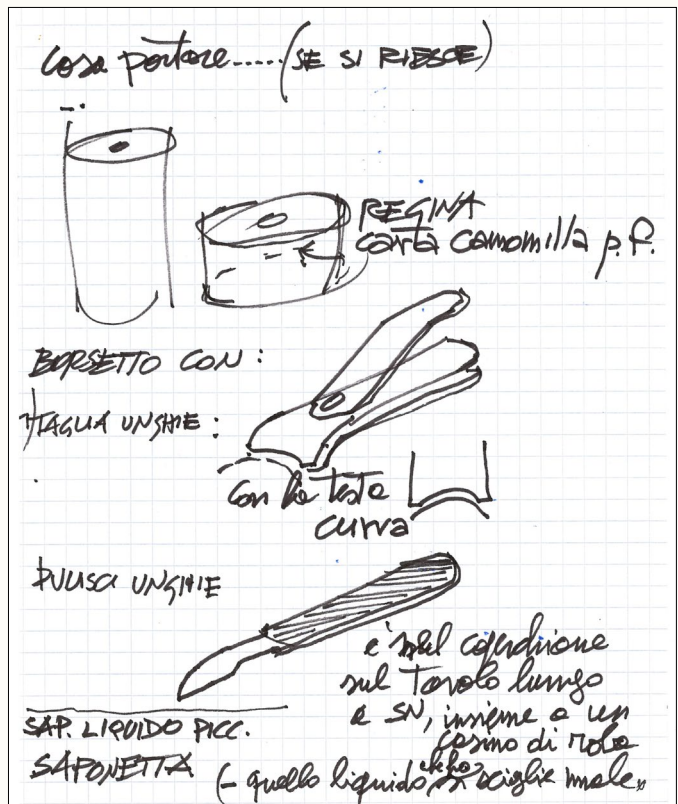 Cosa portare.....(SE SI RIESCE)
REGINA
carta camomilla p.f.
BORSETTO CON:
TAGLIA UNGHIE:
con la testa
curva
PULISCI UNGHIE
è nel
sul Tavolo lungo
a SN, insieme a un
casino di roba
SAP. LIQUIDO PICC.
SAPONETTA
(- quello liquido scioglie male